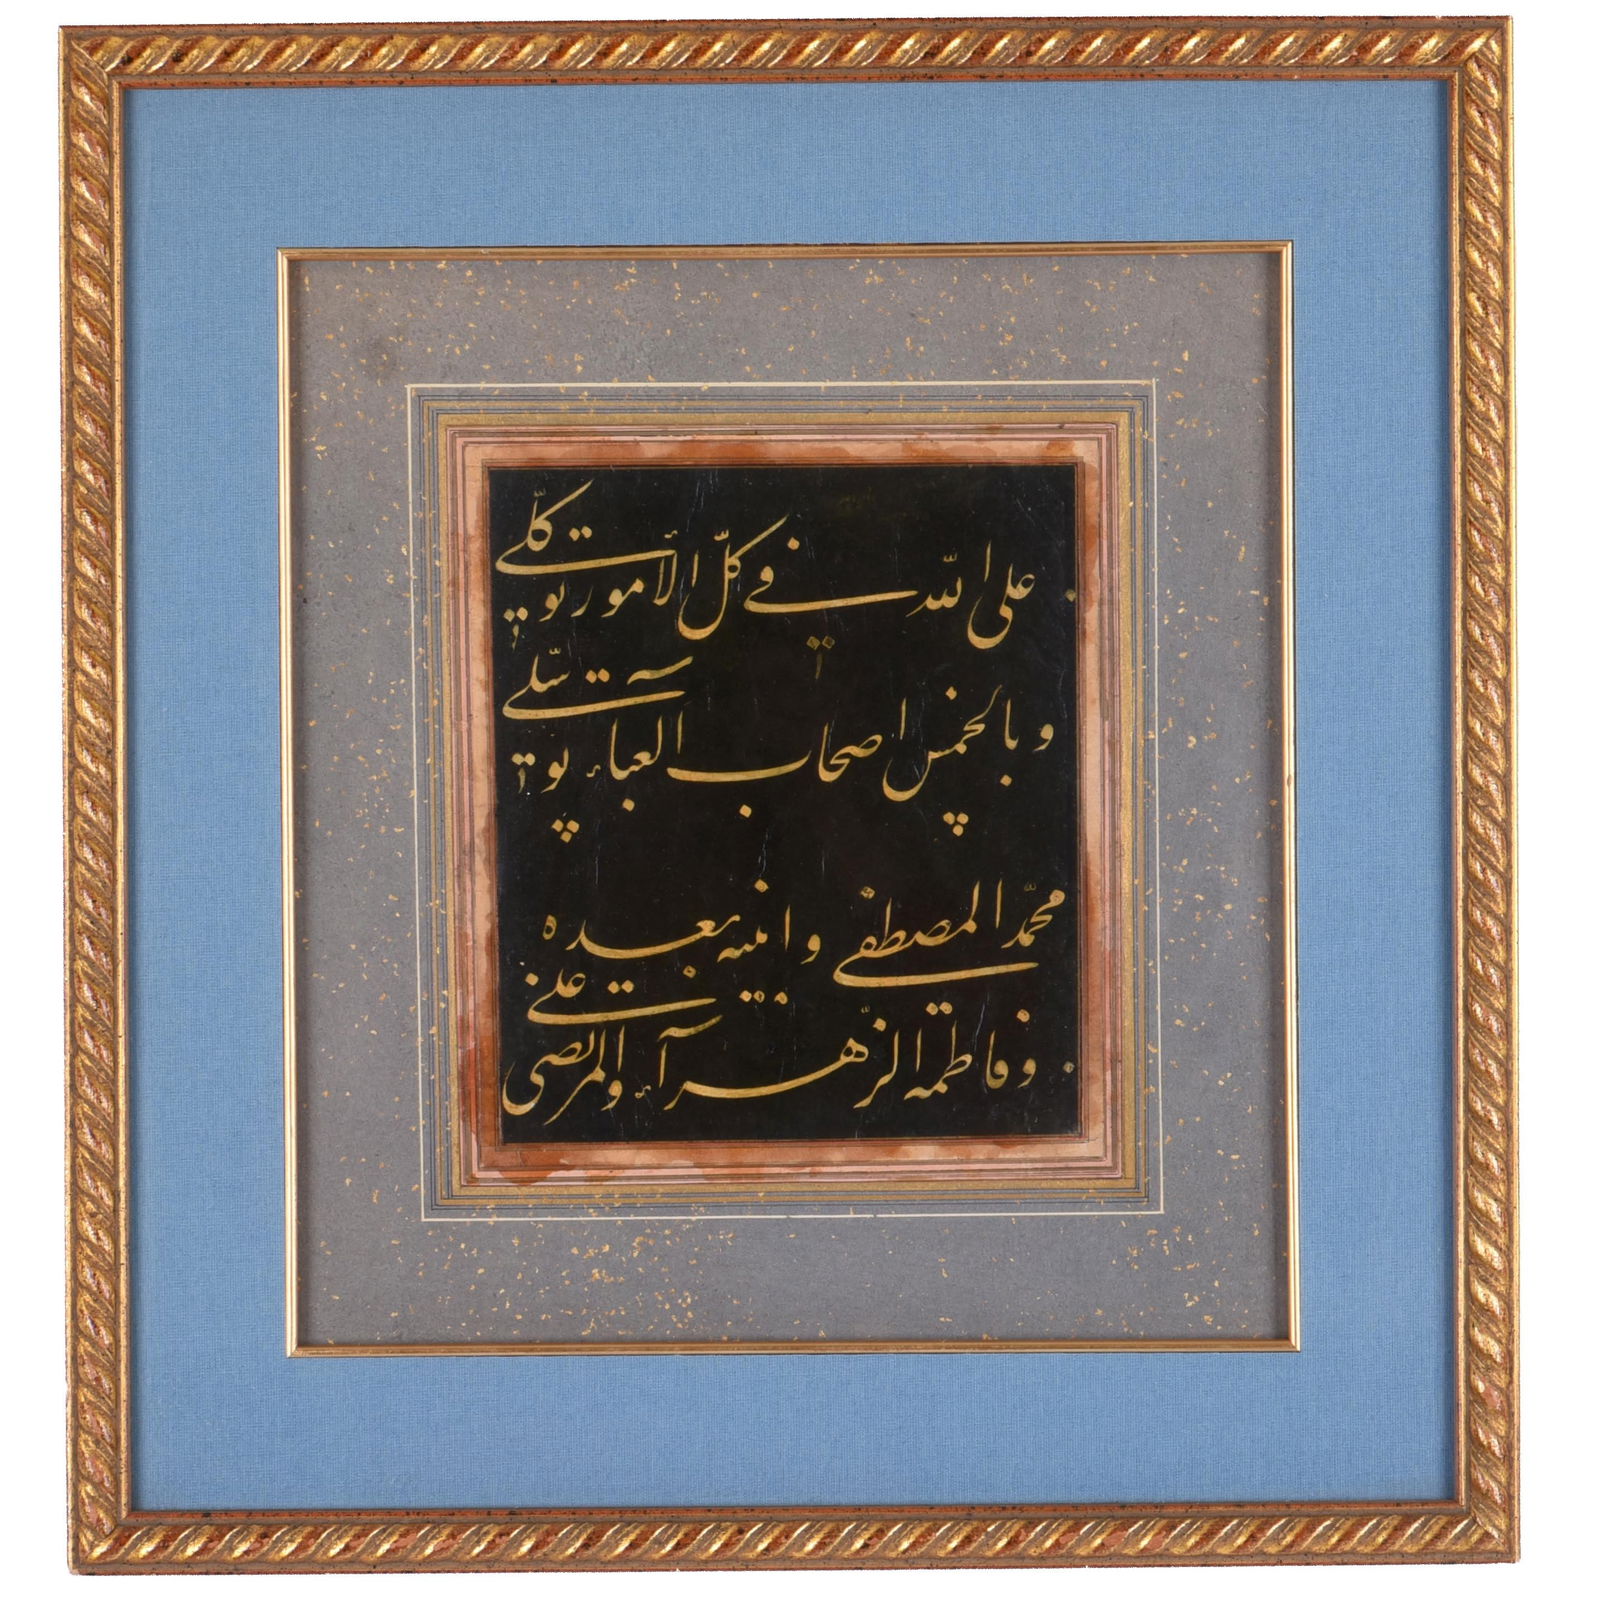 على الله في كلّ الأمور توكّلي
وبالخمس اصحاب العباء توسّلي
محمّد المصطفى وابنيه بعده
وفاطمة الزّهرآء والمرتضى علي